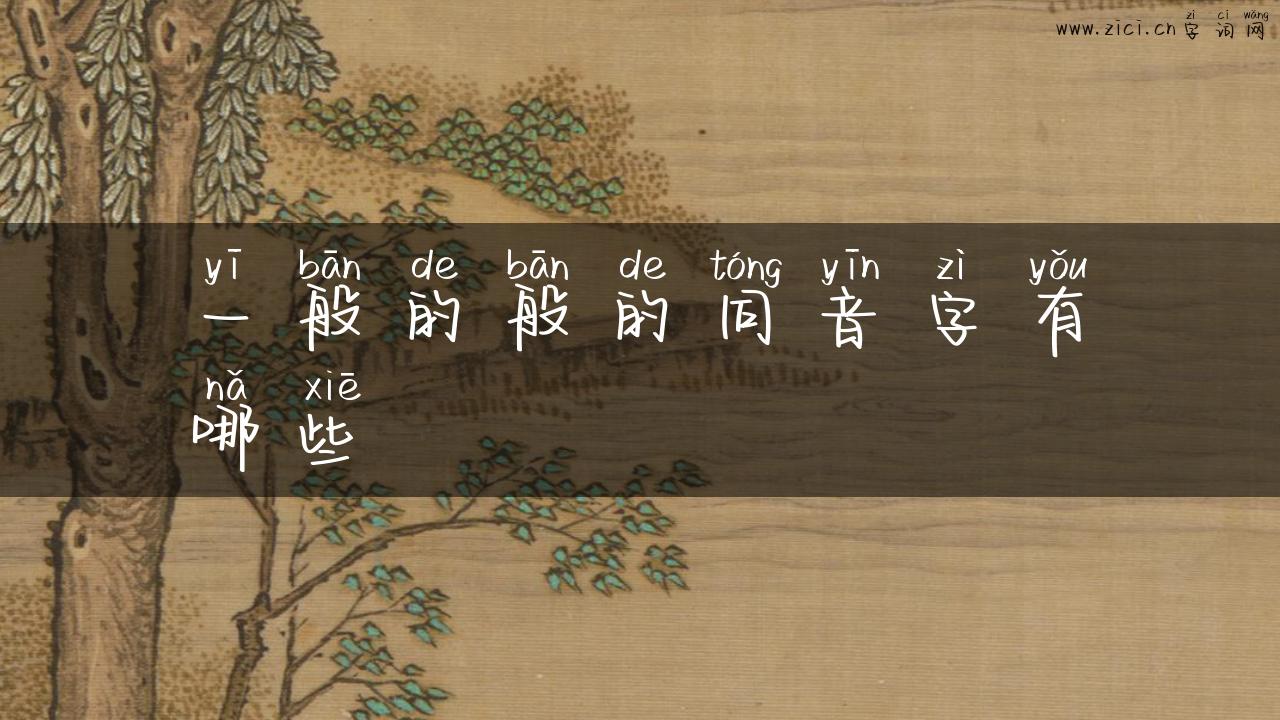 zì cí wǎng
www.zici.cn 字词网
yī bān de bān de tóng yīn zì yǒu
一般的般的同音字有
nǎ xiē
哪些